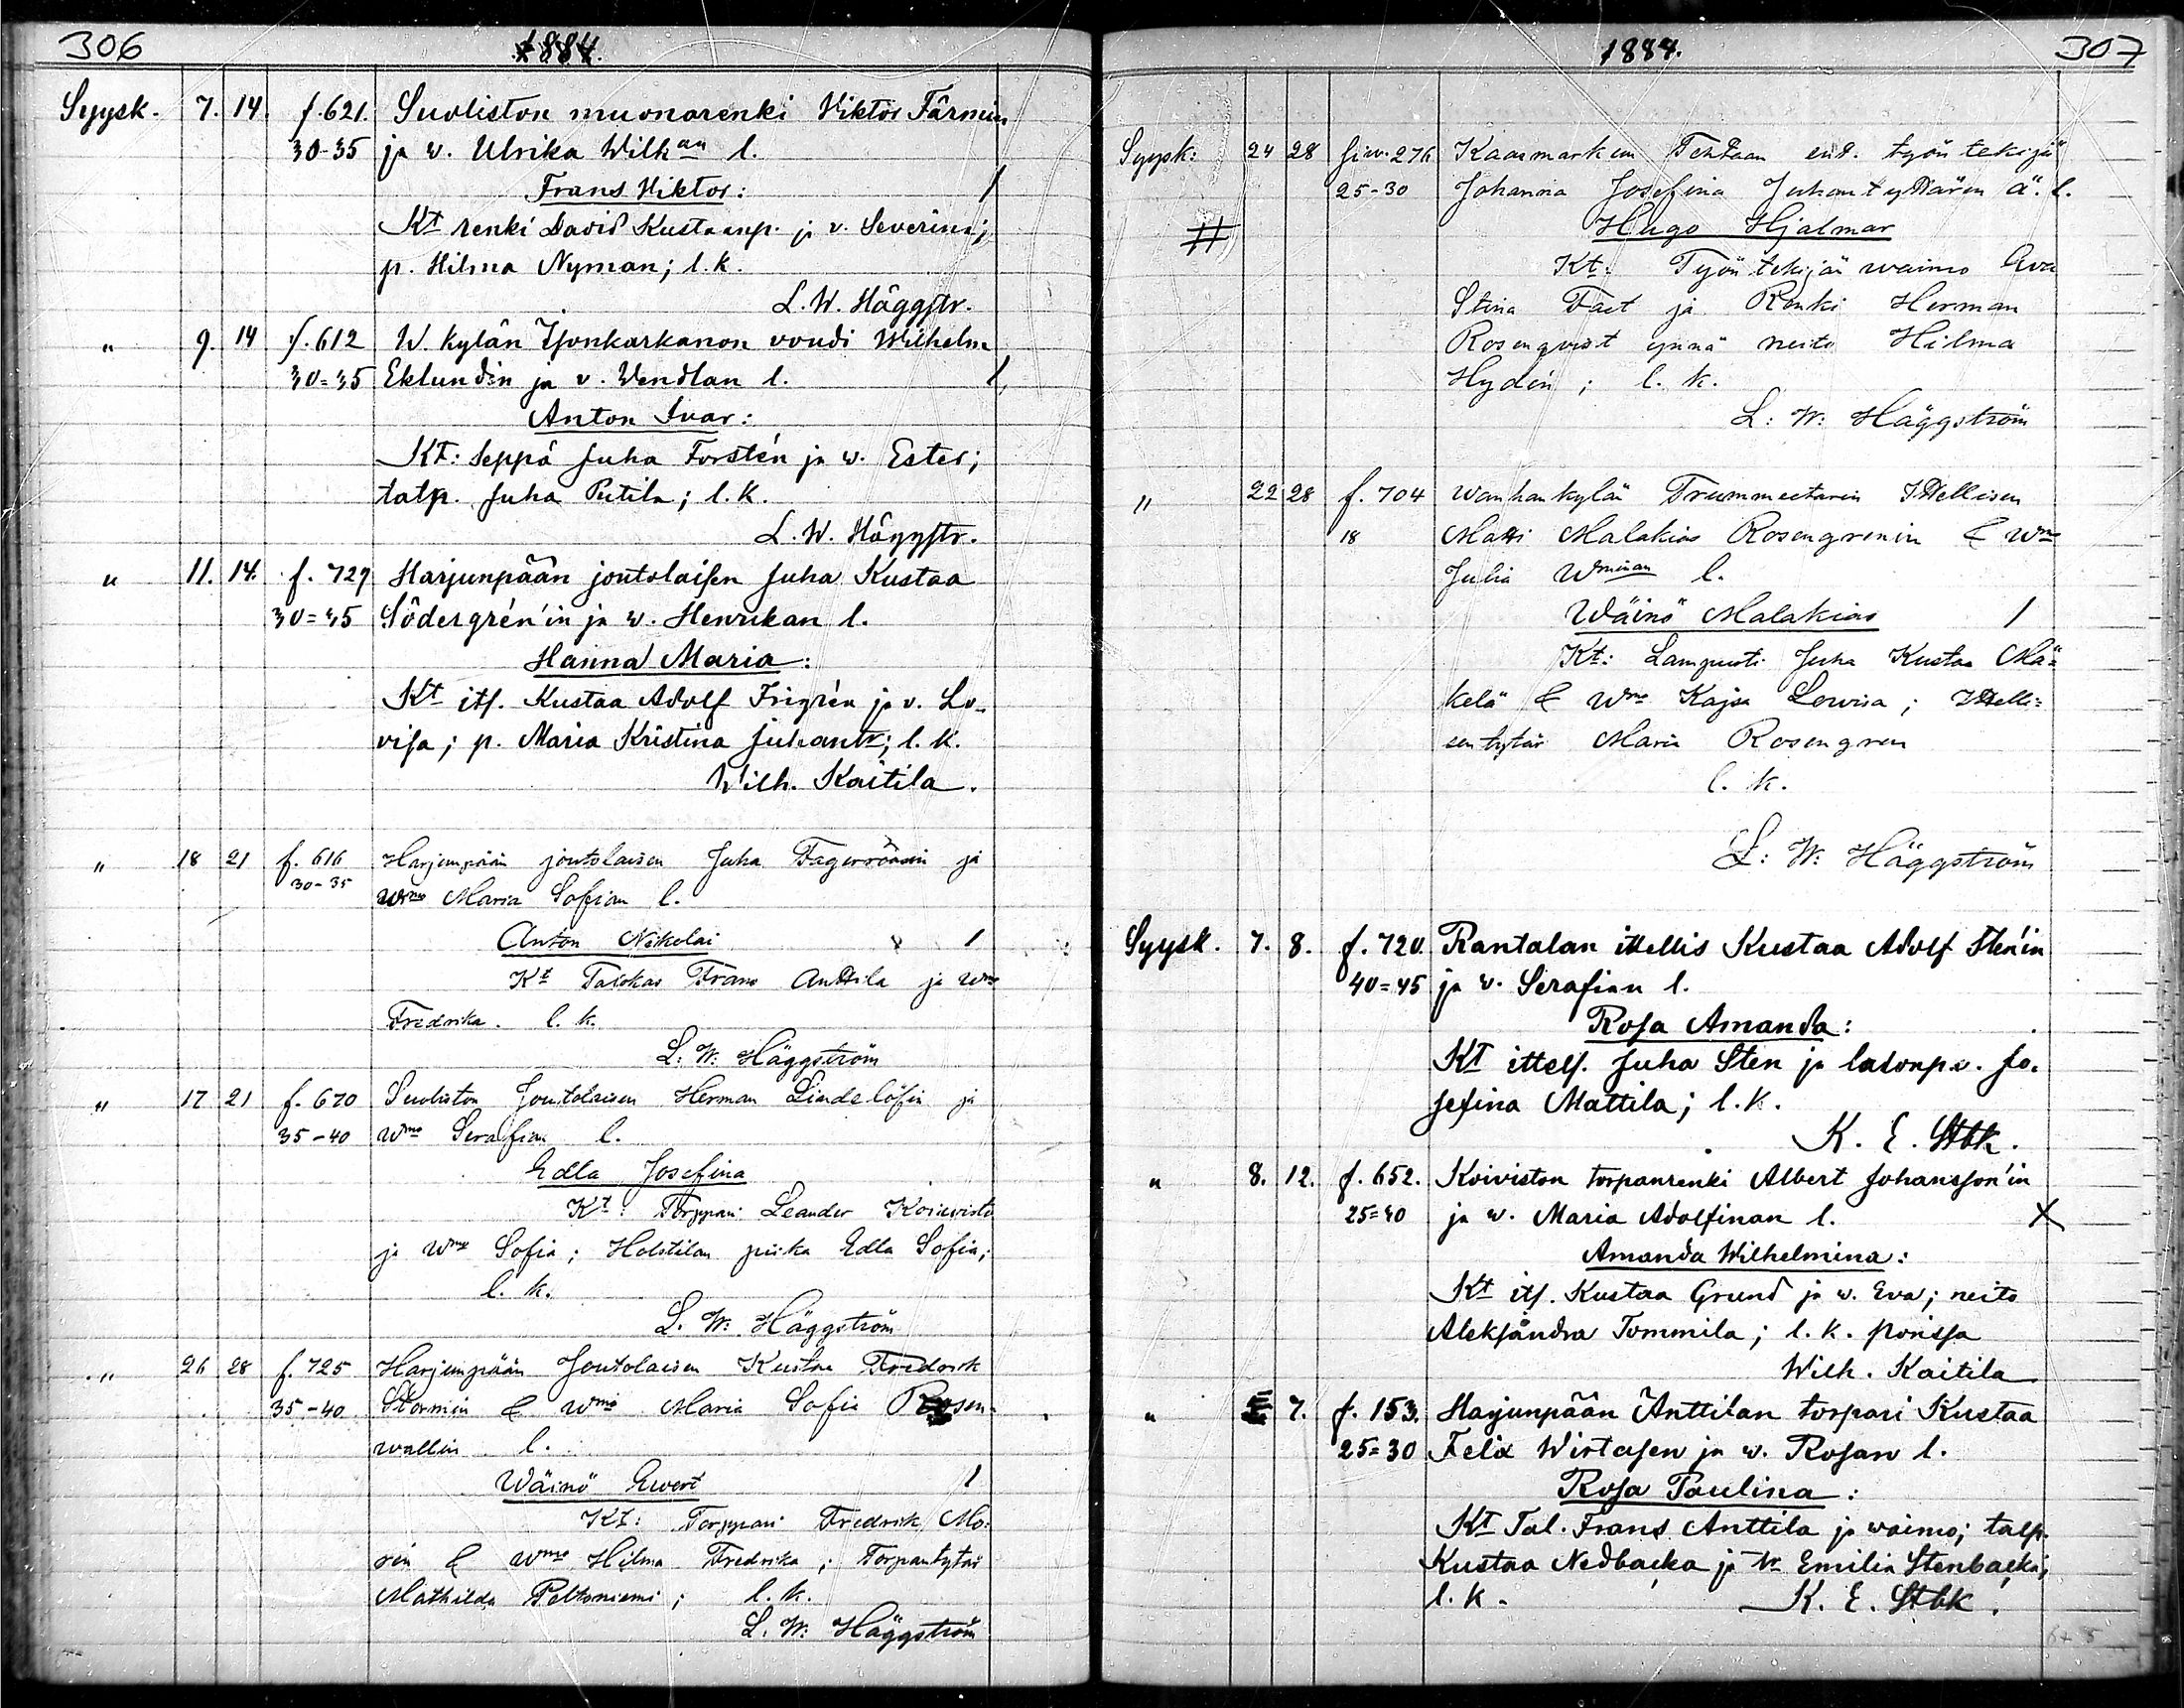 306
1884.
Syysk. 7. 14. f. 621. Suoliston muonarenki Viktor Färmin
30-35 ja w. Ulrika Wilhan l.
Frans Viktor:
Kt renki David Kustaanp. ja v. Severina;
p. Hilma Nyman; l.k.
L. W. Häggstr.
" 9. 14 f. 612 W. kylän Isonkarkanon voudi Wilhelm
30=35 Eklundin ja v. Wendlan l.
Anton Ivar:
Kt: Seppä Juha Forstén ja w. Ester;
talp. Juha Putila; l.k.
L. W. Häggstr.
" 11. 14. f. 729 Harjunpään joutolaisen Juha Kustaa
30=35 Södergrén'in ja w. Henrikan l.
Hanna Maria:
Kt its. Kustaa Adolf Frigrén ja v. Lo-
visa; p. Maria Kristina Juhantr; l.k.
Wilh. Kaitila.
" 18 21 f. 616 Harjunpään joutolaisen Juha Fagerroosin ja
30-35 wmo Maria Sofian l.
Anton Nikolai
Kt Talokas Frans Anttila ja wmo
Fredrika. l. k.
L: W: Häggström
" 17 21 f. 670 Suoliston Joutolaisen Herman Lindelöfin ja
35-40 wmo Serafian l.
Edla Josefina
Kt: Torppari Leander Koivisto
ja wmo Sofia; Holstilan piika Edla Sofia;
l. k.
L. W: Häggström
" 26 28 f. 725 Harjunpään Joutolaisen Kustaa Fredrik
35-40 Stormin & wmo Maria Sofia Rosen-
wallin l.
Wäinö Ewert
Kt: Torppari Fredrik Mo-
rin & wmo Hilma Fredrika; Torpantytär
Mathilda Peltoniemi; l. k.
L. W: Häggström
1884.
307
Syysk: 24 28 Siv. 276 Kaasmarkun Tehtaan ent. työntekijä
25-30 Johanna Josefina Juhantyttären ä. l.
# Hugo Hjalmar
Kt: Työntekijän waimo Eva
Stina Fast ja Renki Herman
Rosenqvist ynnä neito Hilma
Hydén; l. k.
L: W: Häggström
" 22 28 f. 704 Wanhankylän Trummetarin Ittellisen
18 Matti Malakias Rosengrenin & Wmo
Julia Wminan l.
Wäinö Malakias
Kt: Lampuoti Juha Kustaa Mä-
kelä & Wmo Kajsa Lowisa; Ittelli-
sen tytär Maria Rosengren
l. k.
L: W: Häggström
Syysk. 7. 8. f. 720. Rantalan ittellis Kustaa Adolf Sten'in
40=45 ja w. Serafian l.
Rosa Amanda:
Kt ittels. Juha Sten ja ladonp.v. Jo-
sefina Mattila; l.k.
K. E. Stbk.
" 8. 12. f. 652. Koiviston torpanrenki Albert Johansson'in
25=40 ja w. Maria Adolfinan l. X
Amanda Wilhelmina:
Kt its. Kustaa Grund ja w. Eva; neito
Aleksandra Tommila; l. k. Porissa
Wilh. Kaitila
" 7. f. 153. Harjunpään Anttilan torpari Kustaa
25=30 Felix Wirtasen ja w. Rosan l.
Rosa Paulina:
Kt Tal. Frans Anttila ja waimo; talp.
Kustaa Nedbacka ja tr Emilia Stenbacka;
l. k. K. E. Stbk.